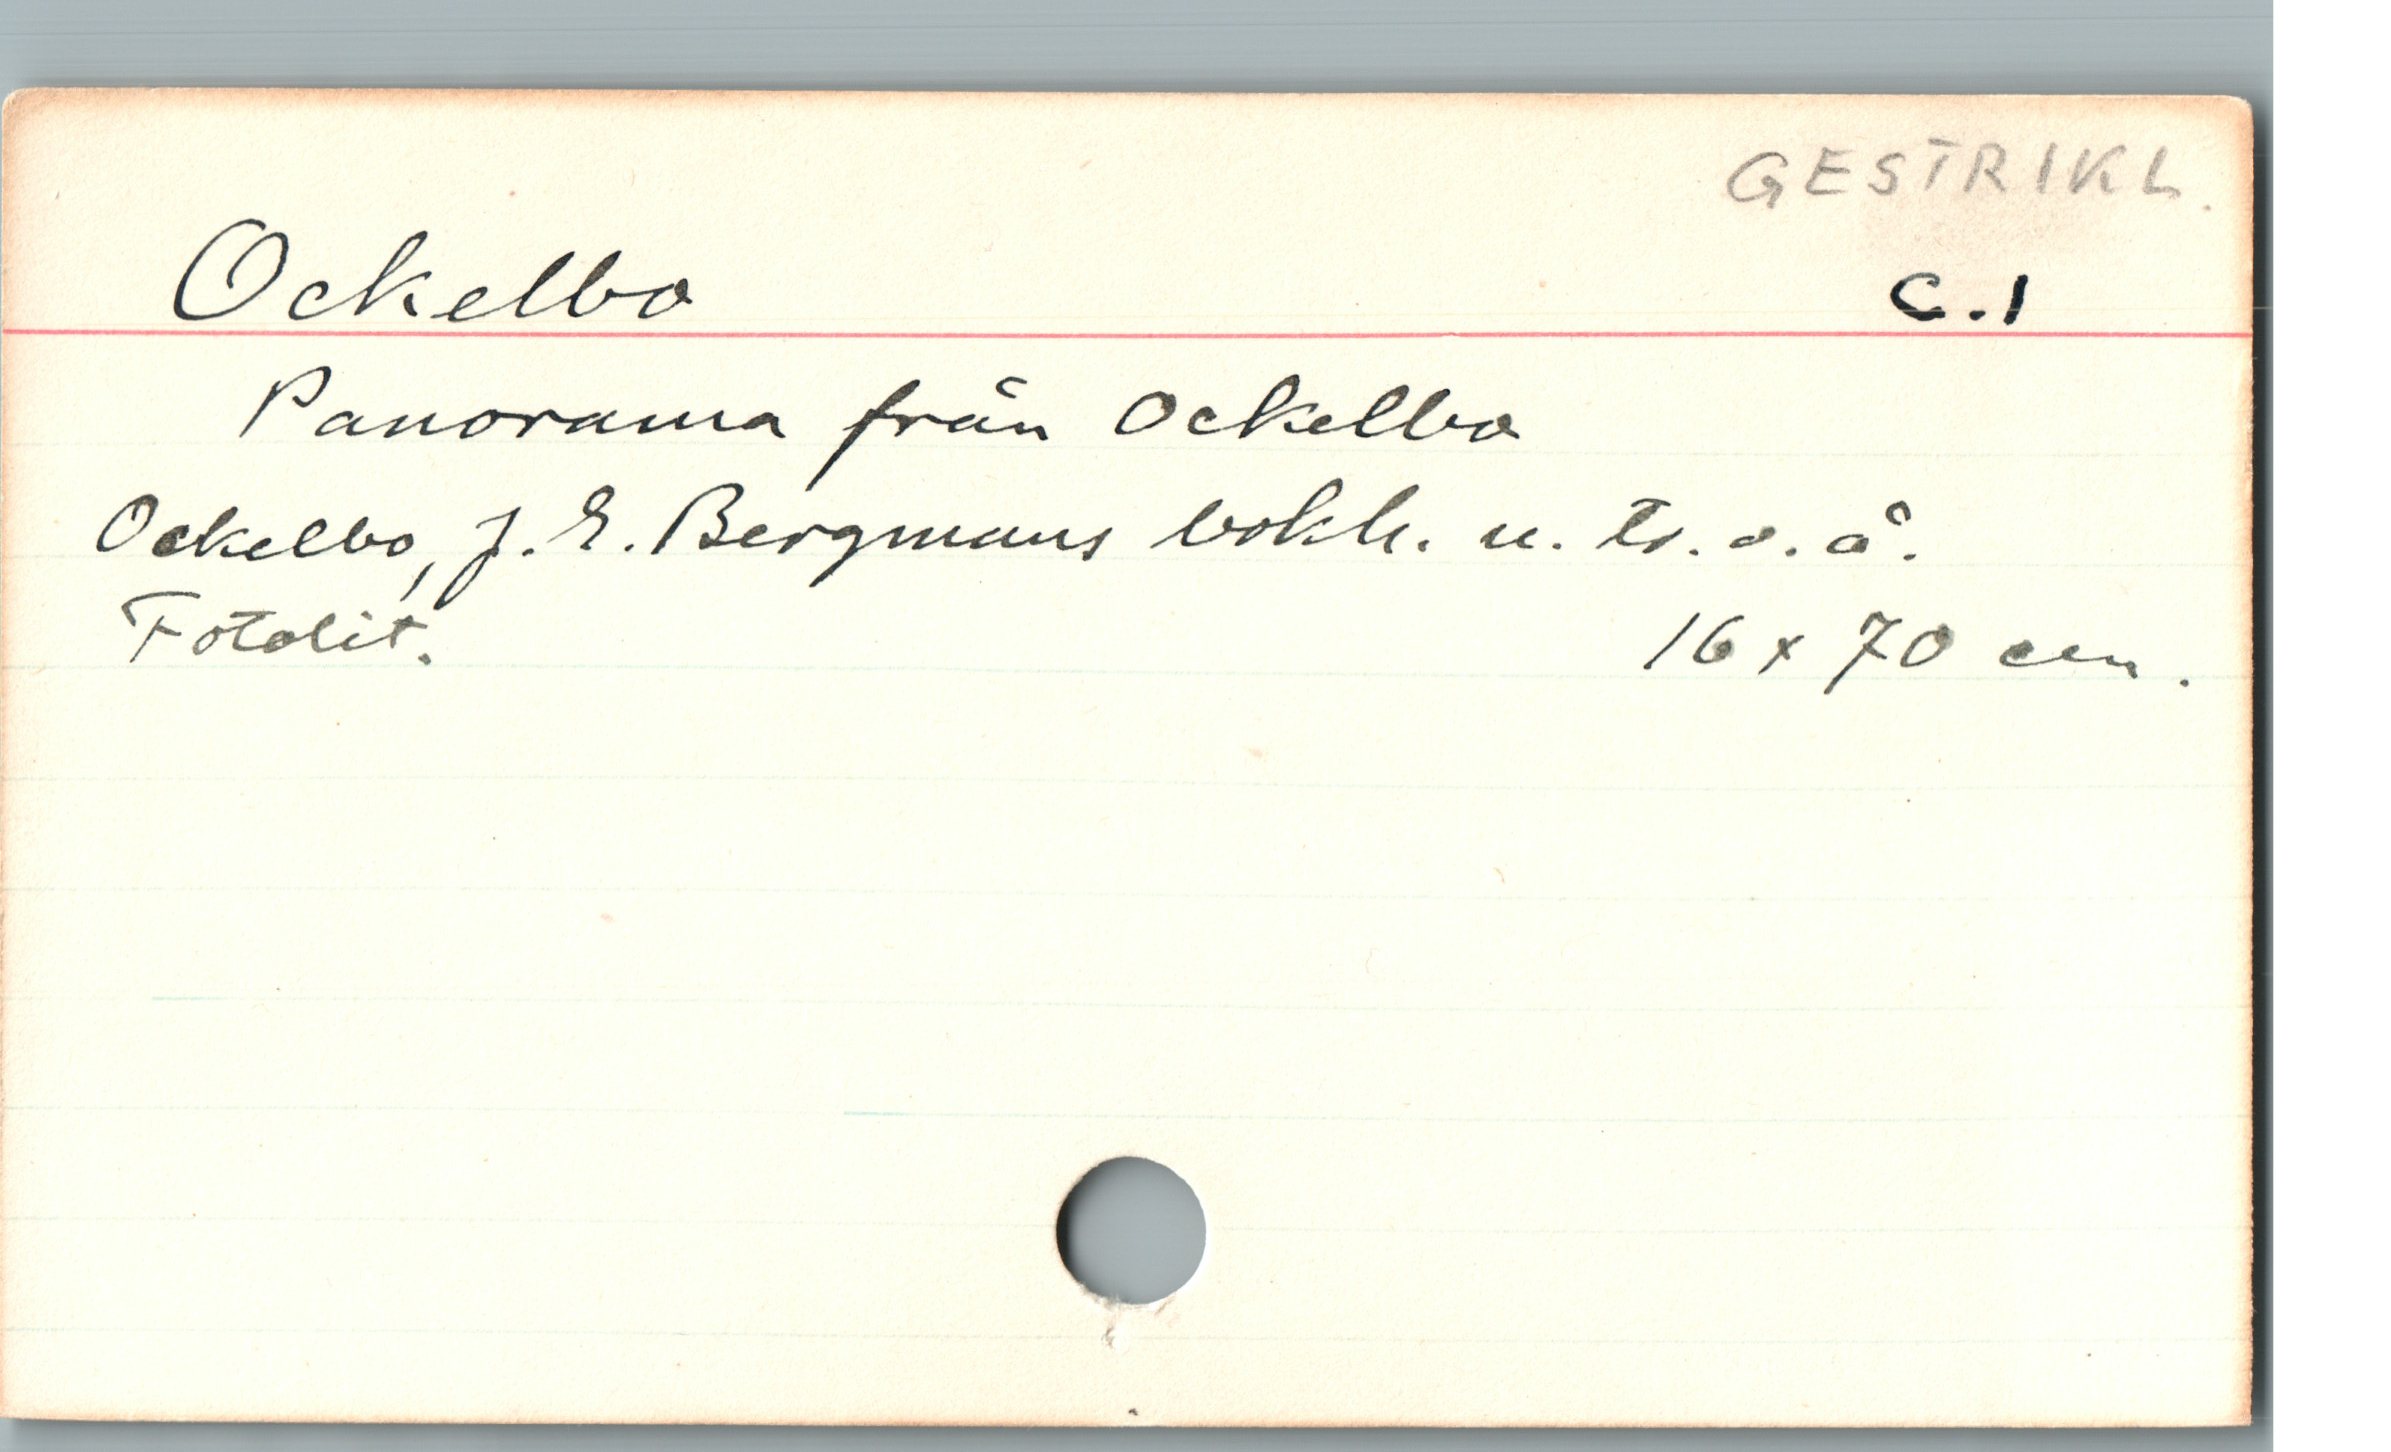 GESTRIKL.
Ockelbo C.1
Panorama från Ockelbo
Ockelbo, J. E. Bergmans bokh. u. tr. o. å.
Fotolit. 16 x 70 cm.